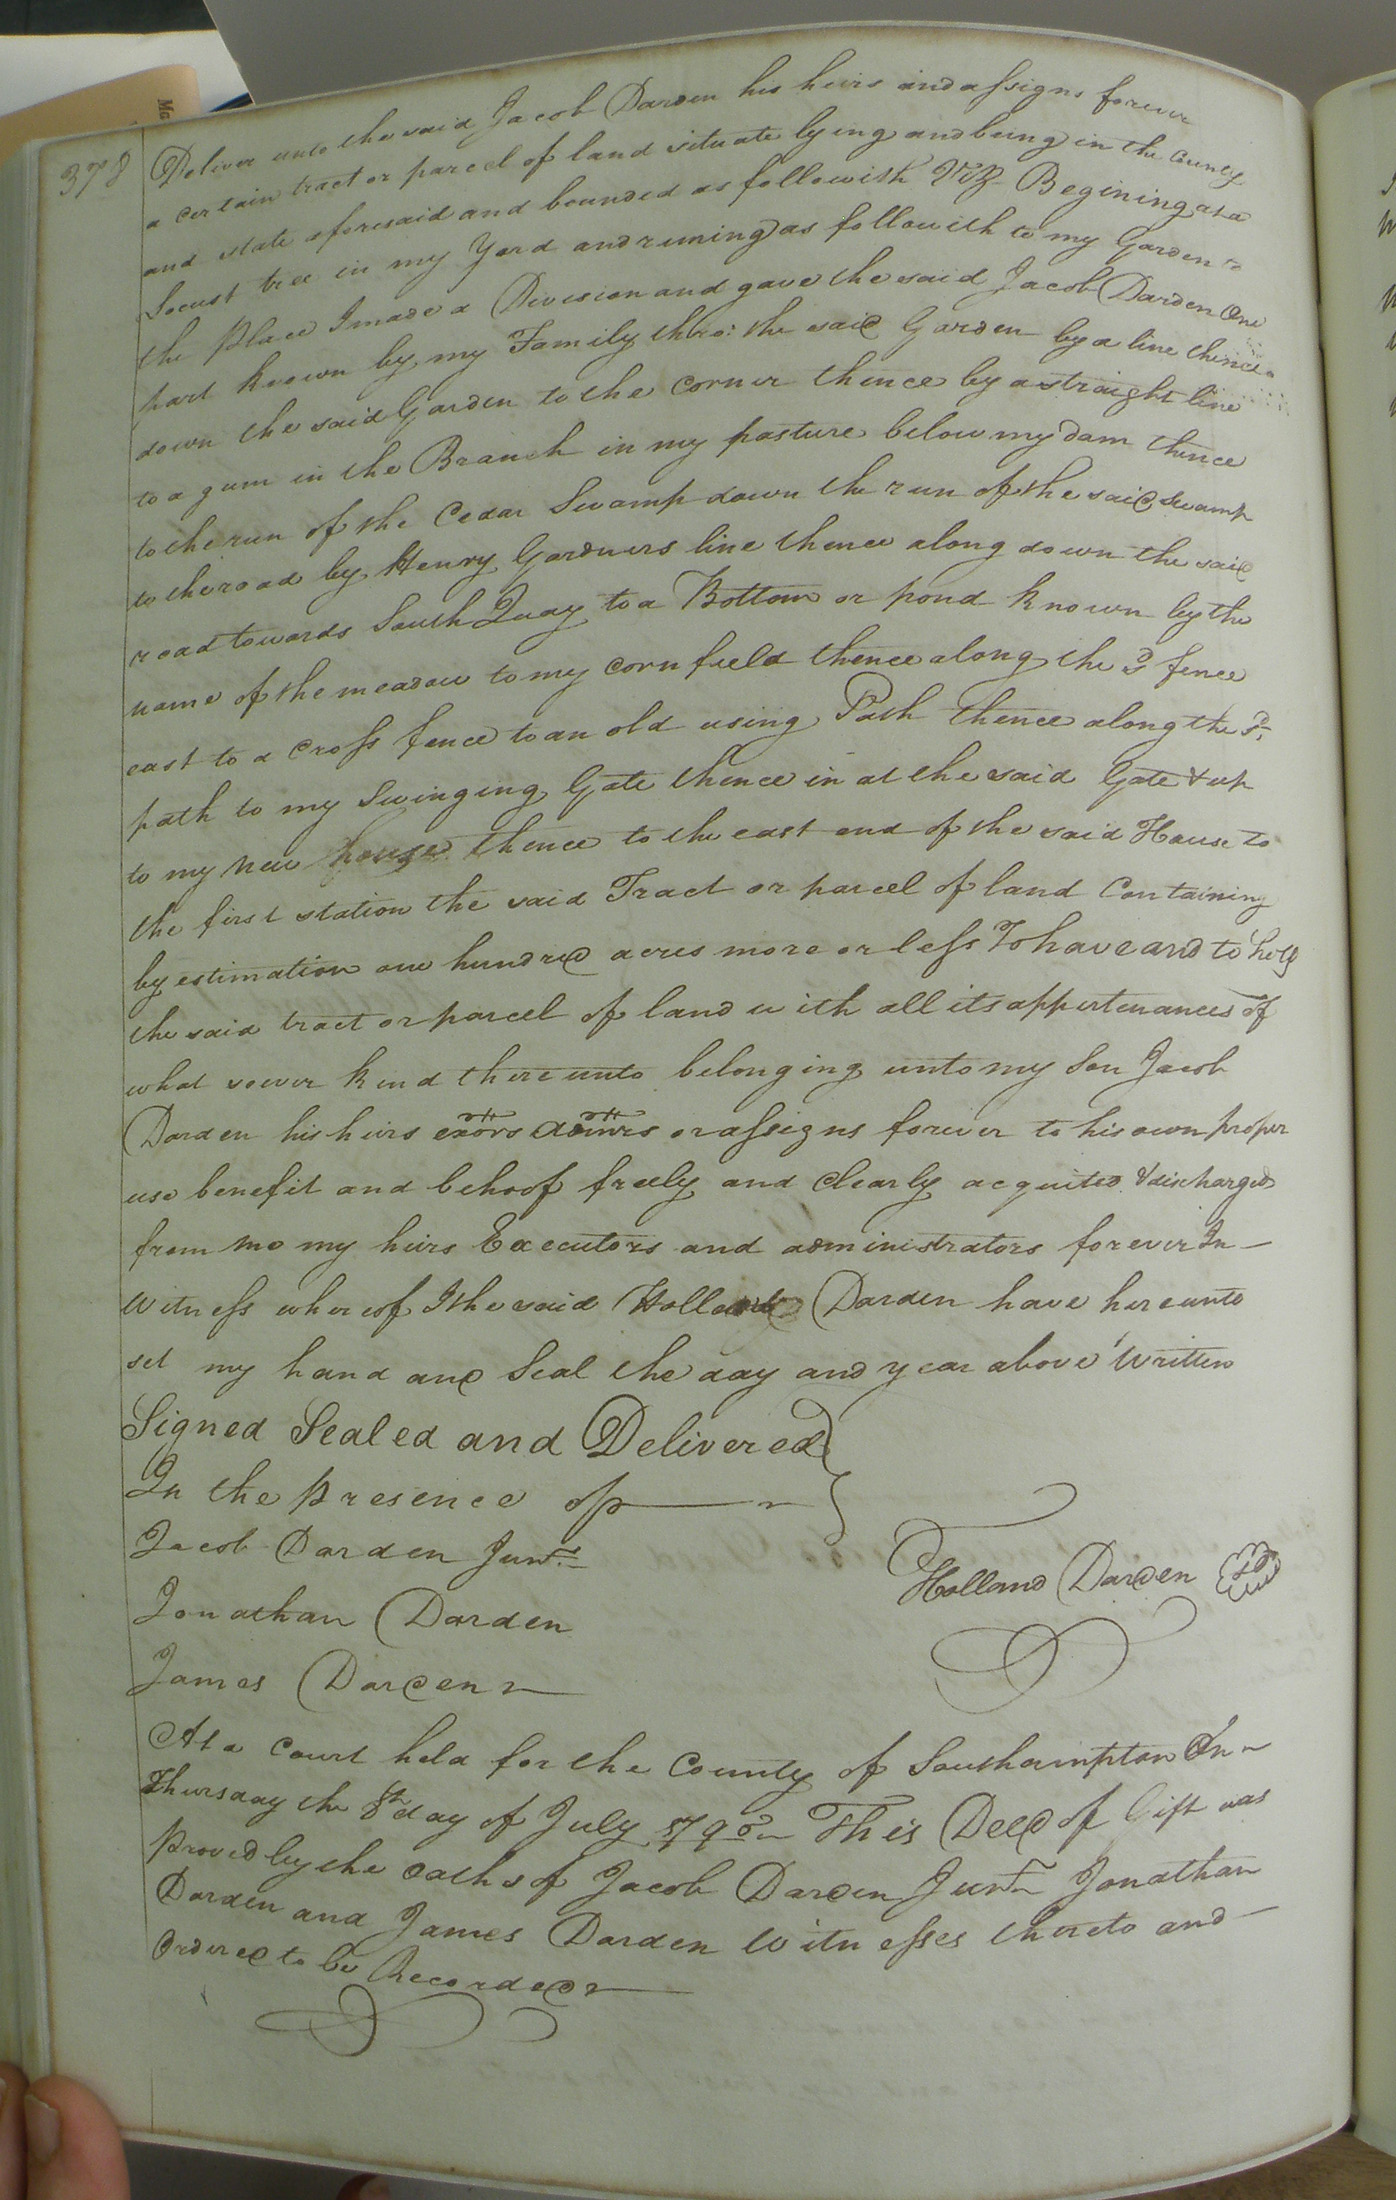 378
Deliver unto the said Jacob Darden his heirs and assigns forever
a certain tract or parcel of land situate lying and being in the County
and state aforesaid and bounded as followith VIZ Begining at a
Locust tree in my Yard and runing as followith to my Garden to
the Place I made a Division and gave the said Jacob Darden One
part known by my Family thro: the said Garden by a line thence
down the said Garden to the corner thence by a straight line
to a gum in the Branch in my pasture below my dam thence
to the run of the Cedar Swamp down the run of the said Swamp
to the road by Henry Gardners line thence along down the said
road towards South Quay to a Bottom or pond known by the
name of the meadow to my corn field thence along the sd fence
east to a cross fence to an old using Path thence along the sd
path to my Swinging Gate thence in at the said Gate & up
to my new house thence to the east end of the said House to
the first station the said Tract or parcel of land Containing
by estimation one hundred acres more or less To have and to hold
the said tract or parcel of land with all its appurtenances of
what soever kind there unto belonging unto my Son Jacob
Darden his heirs exors admrs or assigns forever to his own proper
use benefit and behoof freely and clearly acquited & discharged
from me my heirs Executors and administrators forever In
Witness whereof I the said Holland Darden have hereunto
set my hand and Seal the day and year above Written
Signed Sealed and Delivered
In the presence of
Jacob Darden Junr.
Holland Darden LS
Jonathan Darden
James Darden
At a Court held for the County of Southampton On
Thursday the 8th day of July 1790 This Deed of Gift was
proved by the oaths of Jacob Darden Junr. Jonathan
Darden and James Darden Witnesses thereto and
Ordered to be Recorded